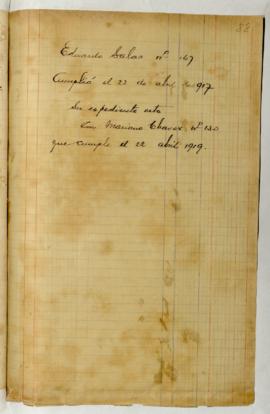 88
Eduardo Salas nº 167
Cumplió el 23 de abril de 917
Su expediente esta
con Mariano Chavez nº 130
que cumple el 22 abril 1919.